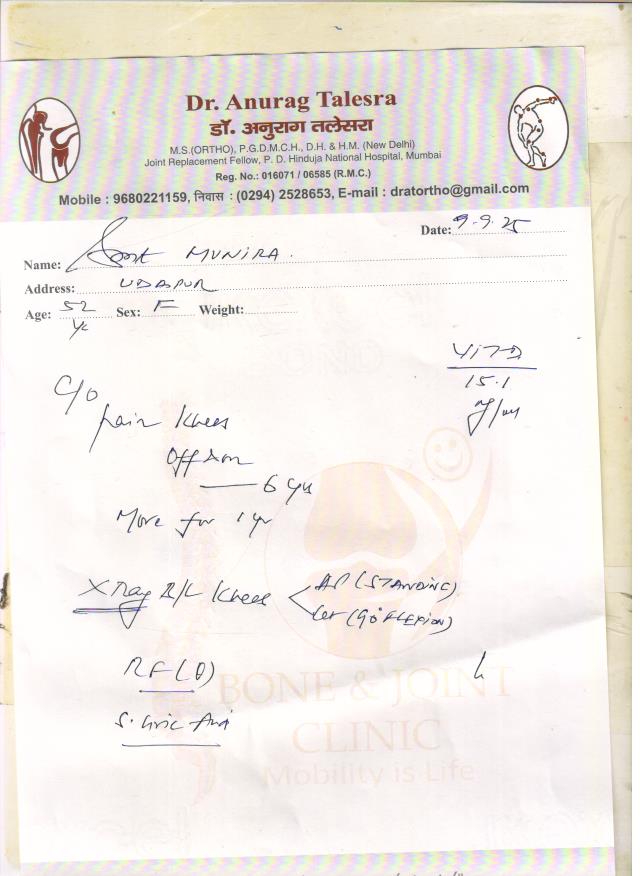 Dr. Anurag Talesra
डॉ. अनुराग तलेसरा
M.S.(ORTHO), P.G.D.M.C.H., D.H. & H.M. (New Delhi)
Joint Replacement Fellow, P. D. Hinduja National Hospital, Mumbai
Reg. No.: 016071 / 06585 (R.M.C.)
Mobile : 9680221159, निवास : (0294) 2528653, E-mail : dratortho@gmail.com
Date: 9.9.25
Name: MUNIRA
Address: UDAIPUR
Age: 52 Yr Sex: F Weight:
VIT D
15.1
C/O
pain Knees
Off & on
6 yrs
More for 1 yr
X Ray B/L Knees AP (STANDING)
Lat (90° FLEXION)
RF (Q)
S. Uric Acid
BONE & JOINT
CLINIC
Mobility is Life